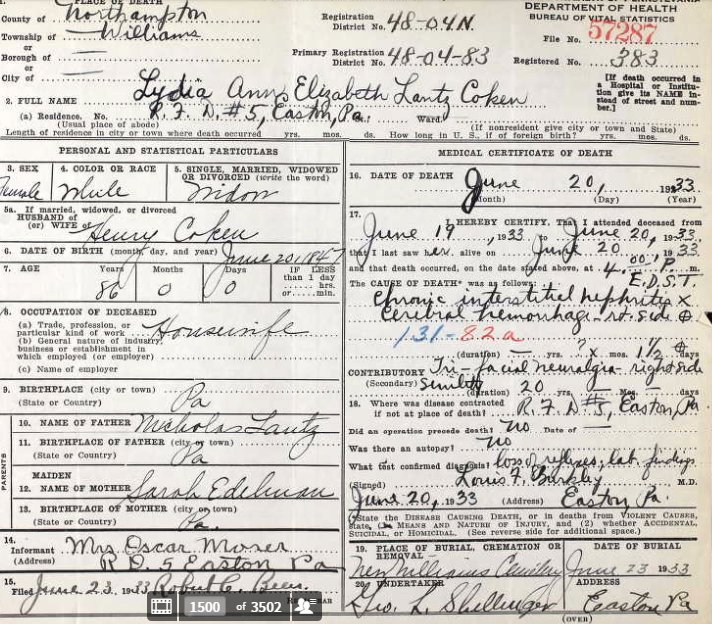 1. PLACE OF DEATH
County of Northampton
Township of Williams
or
Borough of
or
City of
Registration District No. 48-04N
Primary Registration District No. 48-04-83
DEPARTMENT OF HEALTH
BUREAU OF VITAL STATISTICS
File No. 57287
Registered No. 383
[If death occurred in a Hospital or Institution give its NAME instead of street and number.]
2. FULL NAME Lydia Ann Elizabeth Lantz Coken
(a) Residence. No. R. F. D. #5, Easton, Pa. Ward.
(Usual place of abode) (If nonresident give city or town and State)
Length of residence in city or town where death occurred yrs. mos. ds. How long in U. S., if of foreign birth? yrs. mos. ds.
PERSONAL AND STATISTICAL PARTICULARS
3. SEX
Female
4. COLOR OR RACE
White
5. SINGLE, MARRIED, WIDOWED OR DIVORCED (write the word)
Widow
5a. If married, widowed, or divorced
HUSBAND of
(or) WIFE of Henry Coken
6. DATE OF BIRTH (month, day, and year) June 20, 1847
7. AGE Years Months Days IF LESS than 1 day
86 0 0 hrs. or min.
8. OCCUPATION OF DECEASED
(a) Trade, profession, or particular kind of work Housewife
(b) General nature of industry, business or establishment in which employed (or employer)
(c) Name of employer
9. BIRTHPLACE (city or town)
(State or Country) Pa
PARENTS
10. NAME OF FATHER Nicholas Lantz
11. BIRTHPLACE OF FATHER (city or town)
(State or Country) Pa
12. MAIDEN NAME OF MOTHER Sarah Edelman
13. BIRTHPLACE OF MOTHER (city or town)
(State or Country) Pa.
14. Informant Mrs Oscar Moser
(Address) R D. 5 Easton Pa
15. Filed June 23, 1933 Robert C. Beers
REGISTRAR
MEDICAL CERTIFICATE OF DEATH
16. DATE OF DEATH June 20, 1933
(Month) (Day) (Year)
17. I HEREBY CERTIFY, That I attended deceased from
June 19, 1933 to June 20, 1933,
that I last saw her alive on June 20 1933
and that death occurred, on the date stated above, at 4.00 P. m.
E.D.S.T.
The CAUSE OF DEATH* was as follows:
Chronic interstitial nephritis x
Cerebral hemorrhage rt. side
131-82a
(duration) yrs. ? x mos. 1 1/2 days
CONTRIBUTORY Tri-facial neuralgia right side
(Secondary) Senility (duration) 20 Mos.
18. Where was disease contracted
if not at place of death? R. F. D #5, Easton, Pa
Did an operation precede death? no Date of
Was there an autopsy? no
What test confirmed diagnosis? loss of reflexes, lab. findings
(Signed) Louis F. M.D.
June 20, 1933 (Address) Easton Pa.
*State the DISEASE CAUSING DEATH, or in deaths from VIOLENT CAUSES, state, (1) MEANS AND NATURE OF INJURY, and (2) whether ACCIDENTAL, SUICIDAL, or HOMICIDAL. (See reverse side for additional space.)
19. PLACE OF BURIAL, CREMATION OR REMOVAL DATE OF BURIAL
New Williams Cemetery June 23 1933
20. UNDERTAKER ADDRESS
Geo. L. Shellinger Easton Pa
(OVER)
1500 of 3502